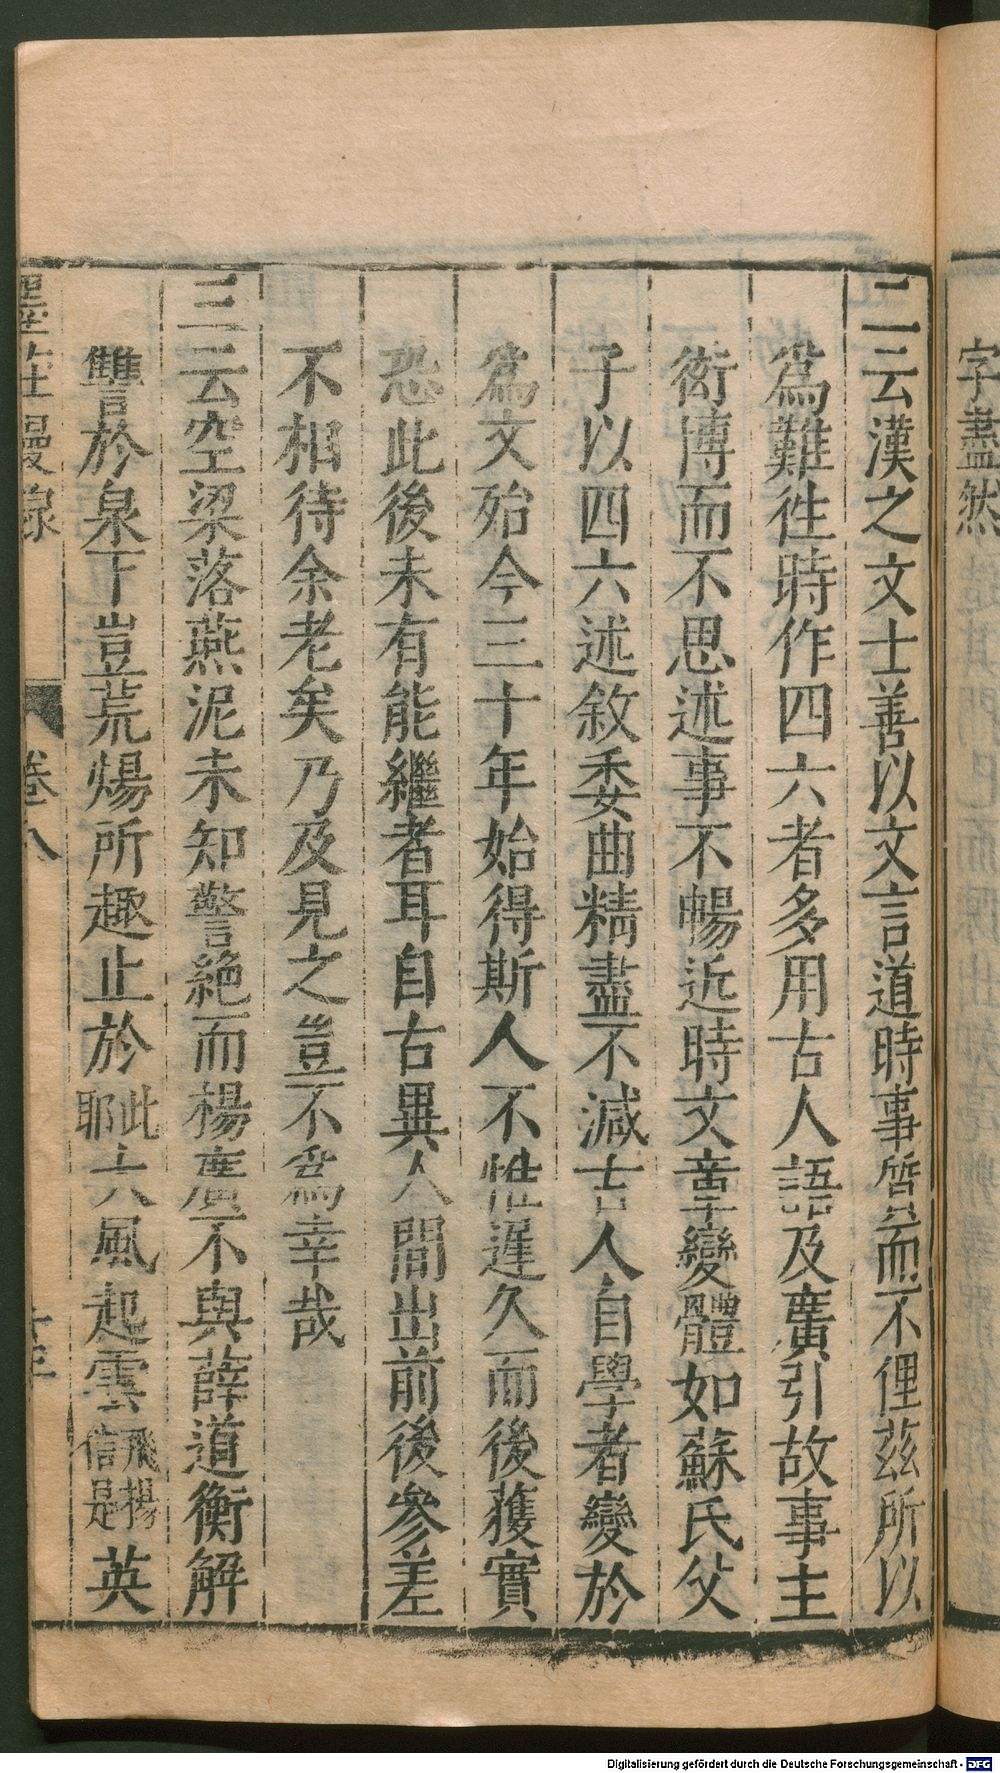 字盡然
二云漢之文士善以文言道時事質而不俚茲所以
爲難徃時作四六者多用古人語及廣引故事主
衒博而不思述事不暢近時文章變體如蘇氏父
子以四六述敘委曲精盡不減古人自學者變於
爲文殆今三十年始得斯人不惟遲久而後獲實
恐此後未有能繼者耳自古異人間出前後參差
不相待余老矣乃及見之豈不爲幸哉
三云空梁落燕泥未知警絶而楊廣不與薛道衡解
讐於泉下豈荒煬所趣止於此耶大風起雲飛揚信是英
卷八
Digitalisierung gefördert durch die Deutsche Forschungsgemeinschaft - DFG